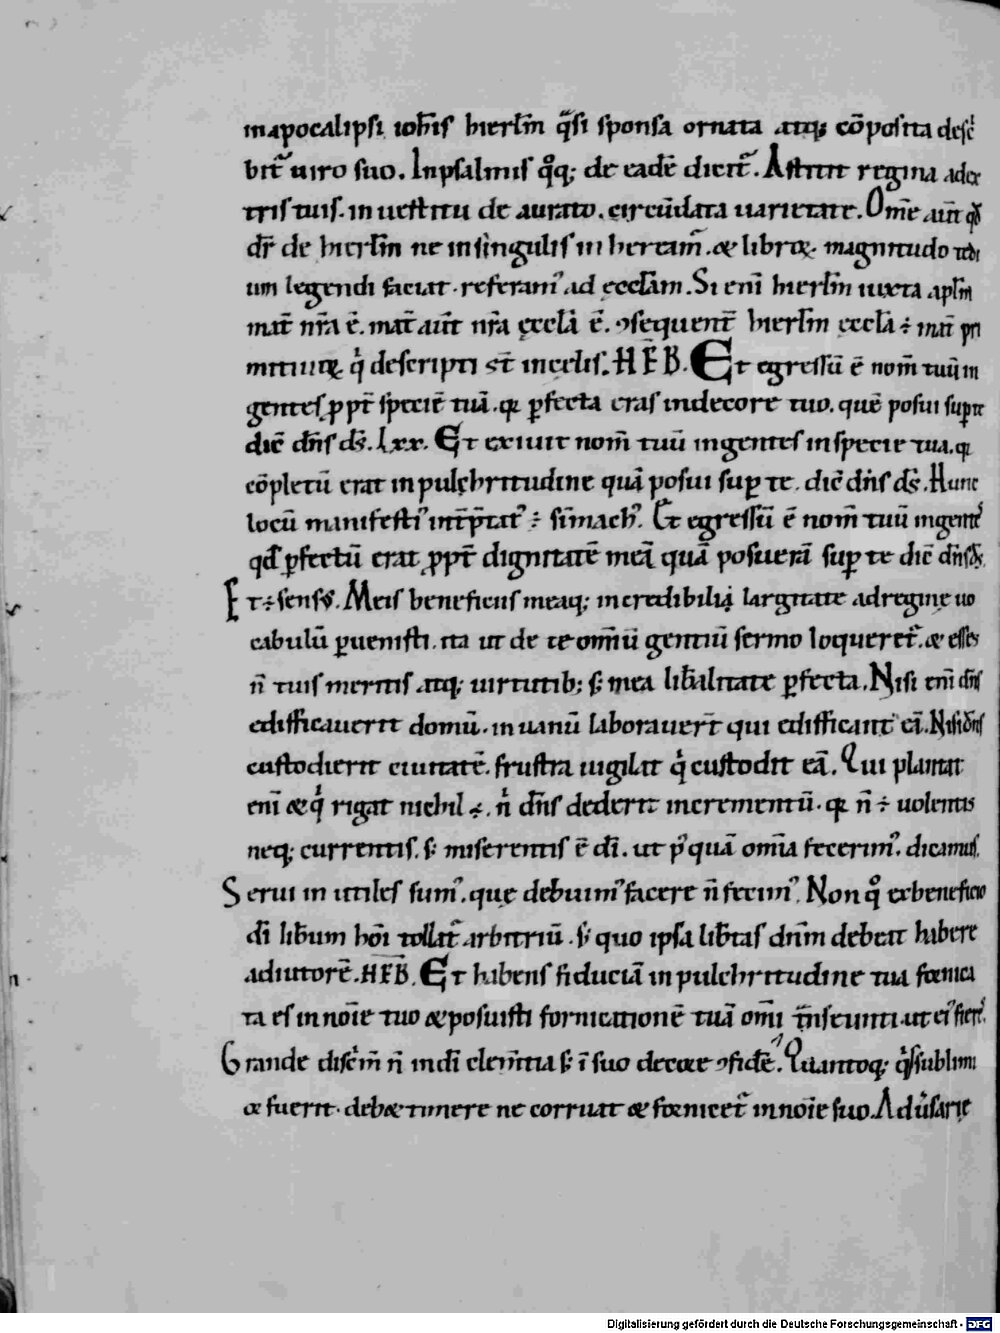 inapocalipsi ioh̅is hierl̅m q̅si sponsa ornata atq; co̅posita desc̍
brit̃ uiro suo. Inpsalmis q̊q; de eade̅ dicit̃. Astitit regina adex
tris tuis. in uestitu de aurato. circu̅data uarietate. Om̅e aut̅ qd̅
dr̅ de hierl̅m ne insingulis in heream̅. & libroꝝ magnitudo tedi
um legendi faciat. referam᾿ ad ęccl̅am. Si eni̅ hierl̅m iuxta apl̅m
mat̅ nr̅a e̅. mat̅ aut̅ nr̅a ęccl̅a e̅. ꝯsequent̅ hierl̅m ęccl̅a ÷ mat̅ pri
mitiuoꝝ q̍ descripti st̅ incęlis. HEB̅. Et egressu̅ e̅ nom̅ tuu̅ in
gentes ꝓpt̅ specie̅ tua̅. qꝛ ꝑfecta eras indecore tuo. que̅ posui suꝑ te
dic̅ dn̅s ds̅. lxx. Et exiuit nom̅ tuu̅ ingentes inspecie tua. qꝛ
co̅pletu̅ erat inpulchritudine qua̅ posui suꝑ te. dic̅ dn̅s ds̅. Hunc
locu̅ manifesti᾿ int̅p̅tat᾿ ÷ sim̅ach᾿. Et egressu̅ e̅ nom̅ tuu̅ ingentes
qd̅ ꝑfectu̅ erat ꝓpt̅ dignitate̅ mea̅ qua̅ posuera̅ suꝑ te dic̅ dn̅s ds̅.
Et ÷ sensus. Meis beneficiis meaq; incredibili largitate adregine uo
cabulu̅ ꝑuenisti. ita ut de te omniu̅ gentiu̅ sermo loqueret̃. & esses
n̅ tuis meritis atq; uirtutib; s; mea lib̅alitate ꝑfecta. Nisi eni̅ dn̅s
edifficauerit domu̅. in uanu̅ laborauer̅t qui edifficant ea̅. Nisi dn̅s
custodierit ciuitate̅. frustra uigilat q̍ custodit ea̅. Qui plantat
eni̅ & q̍ rigat nichil ÷. n̍ dn̅s dederit incrementu̅. qꝛ n̅ ÷ uolentis
neq; currentis. s; miserentis e̅ di̅. ut p᾿quã omi̅a fecerim᾿. dicamus.
Serui in utiles sum᾿. que debuim᾿ facere n̅ fecim᾿. Non q̊ exbeneficio
di̅ lib̅um ho̅i tollat̃ arbitriu̅. s; quo ipsa lib̅tas dn̅m debeat habere
adiutore̅. HEB̅. Et habens fiducia̅ in pulchritudine tua fornica
ta es in no̅ie tuo & posuisti fornicatione̅ tua̅ omi̅ t̅nseunti. ut ei᾿ fieres.
Grande disc̍m̅ n̅ indi̅ clem̅tia s; i̅ suo decore ꝯfide̅. Quantoq; q̍s sublimi
or fuerit. deb& timere ne corruat & fornicet̃ in no̅ie suo. Adu̍sarię